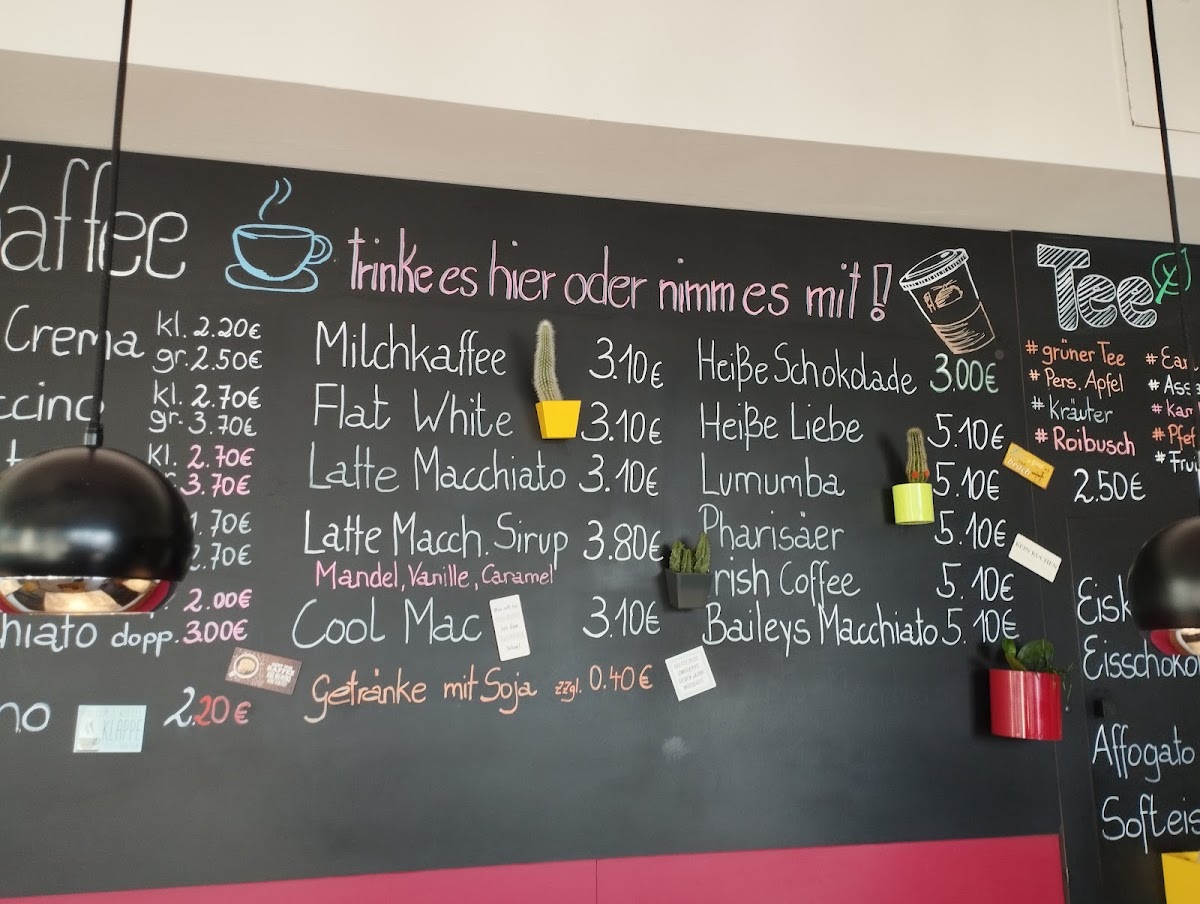 Kaffee
trinke es hier oder nimm es mit!
Crema kl. 2.20€
gr. 2.50€
kl. 2.70€
gr. 3.70€
kl. 2.70€
3.70€
1.70€
2.70€
2.00€
dopp. 3.00€
2.20€
KLAPPE
Milchkaffee 3.10€
Flat White 3.10€
Latte Macchiato 3.10€
Latte Macch. Sirup 3.80€
Mandel, Vanille, Caramel
Cool Mac 3.10€
Getränke mit Soja zzgl. 0.40€
Heiße Schokolade 3.00€
Heiße Liebe 5.10€
Lumumba 5.10€
Pharisäer 5.10€
Irish Coffee 5.10€
Baileys Macchiato 5.10€
Tee
# grüner Tee
# Pers. Apfel
# Kräuter
# Roibusch
2.50€
Affogato
Softeis